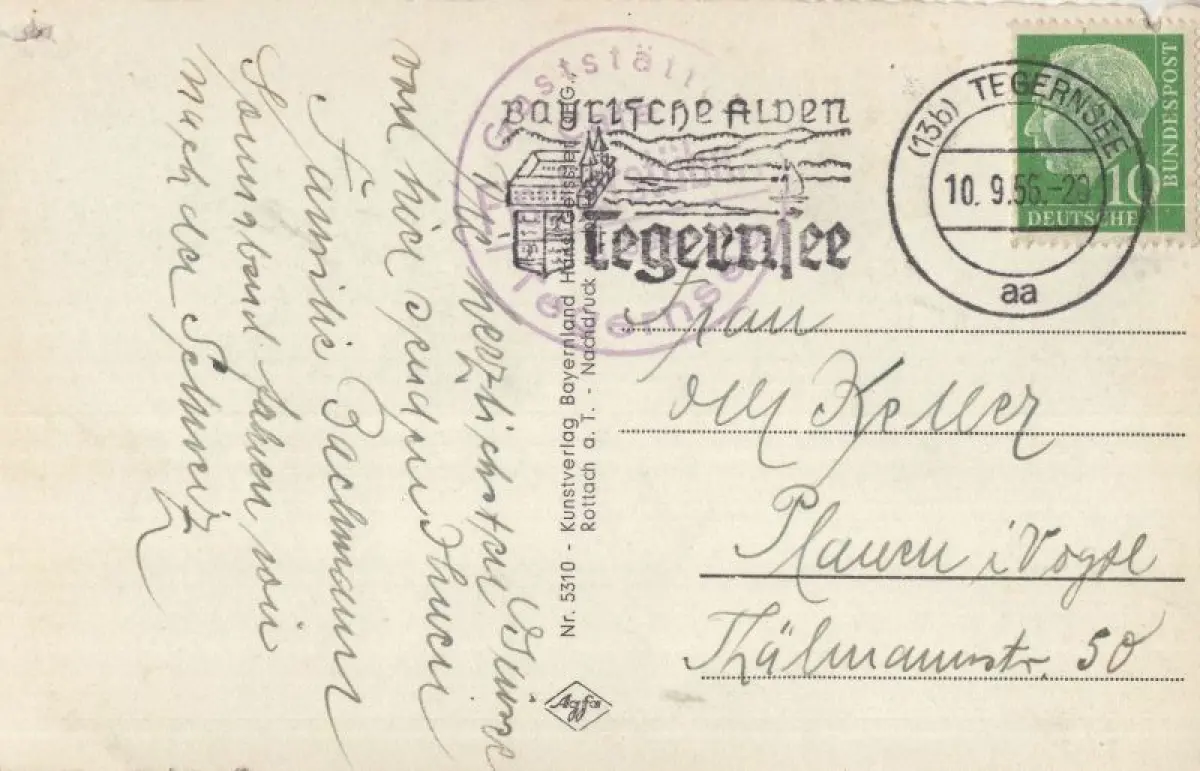 Die herzlichsten Grüsse
von hier senden Ihnen
Familie Bachmann
Sonnabend fahren wir
nach der Schweiz
Nr. 5310 - Kunstverlag Bayernland Hans Geissler
Rottach a. T. - Nachdruck
Agfa
Gaststätte
Tegernsee
Bayrische Alpen
Tegernsee
(13b) TEGERNSEE
10. 9. 56.-20
aa
DEUTSCHE
BUNDESPOST
10
Frau
Keller
Plauen i Vogtl
Thälmannstr. 50